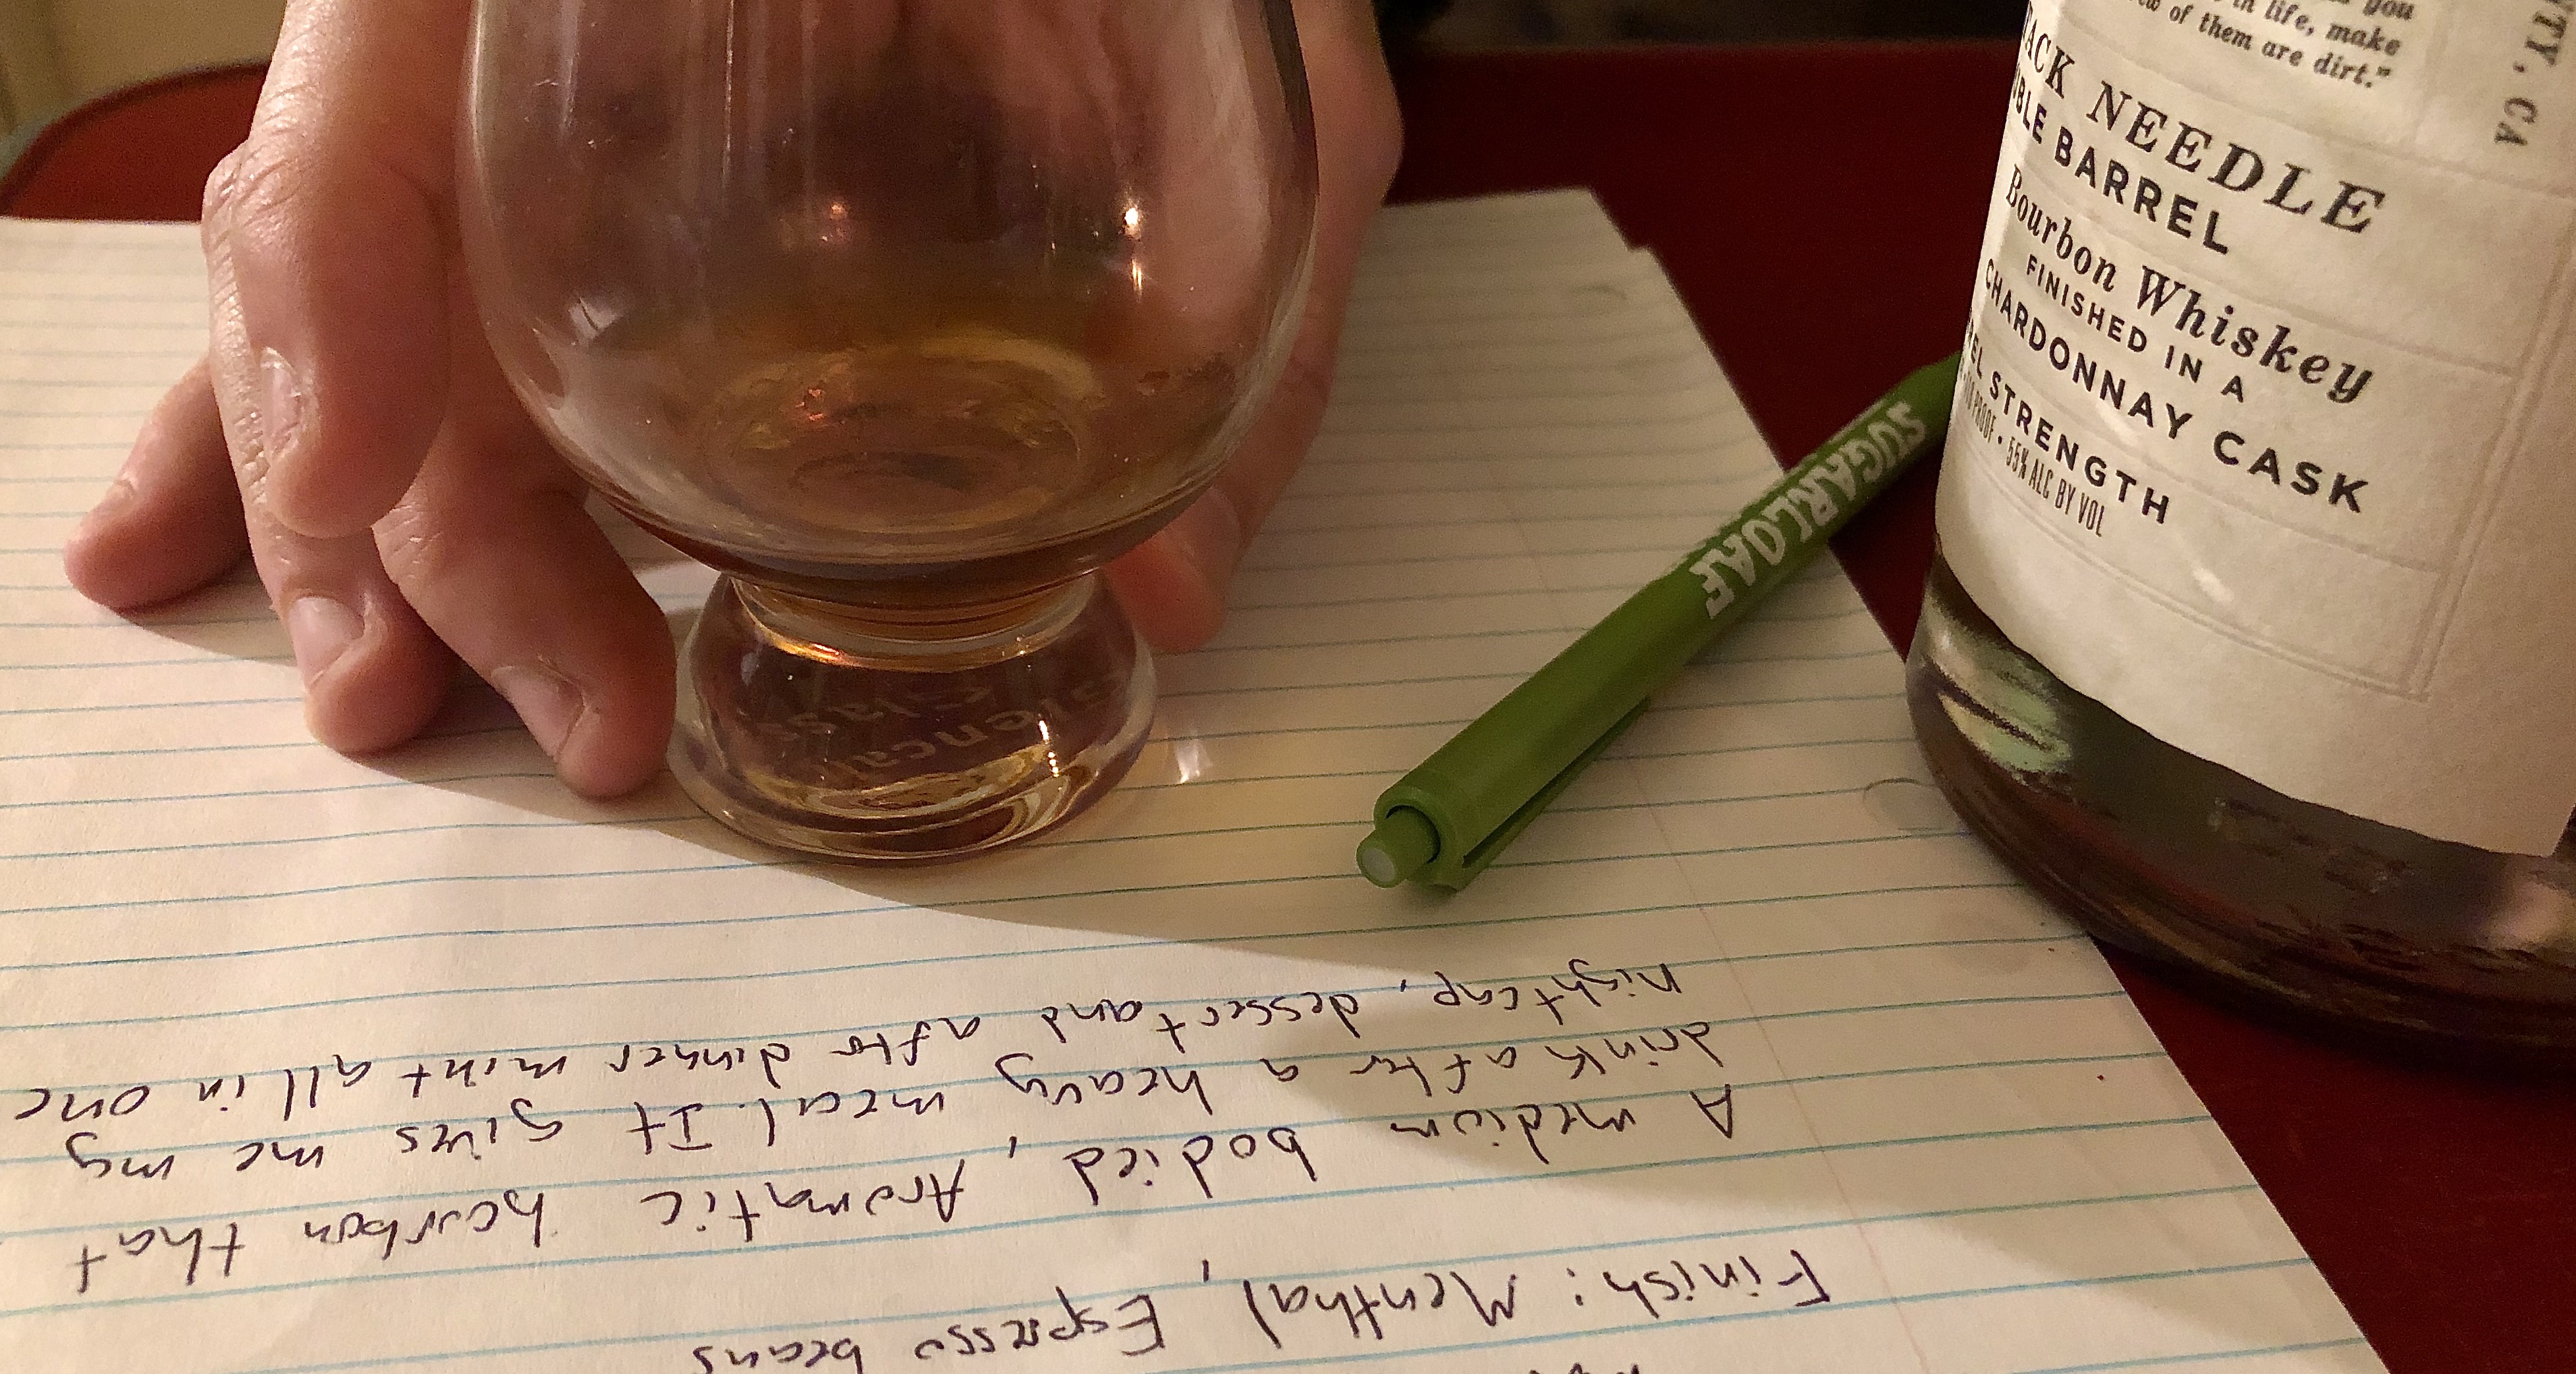 you
in life, make
of them are dirt."
NEEDLE
BARREL
Bourbon Whiskey
FINISHED IN A
CHARDONNAY CASK
STRENGTH
PROOF • 55% ALC BY VOL
CA
SUGARLOAF
Finish: Menthal, Espresso beans
A medium bodied, Aromatic bourbon that
drink after a heavy meal. It gives me my
nightcap, dessert and after dinner mint all in one